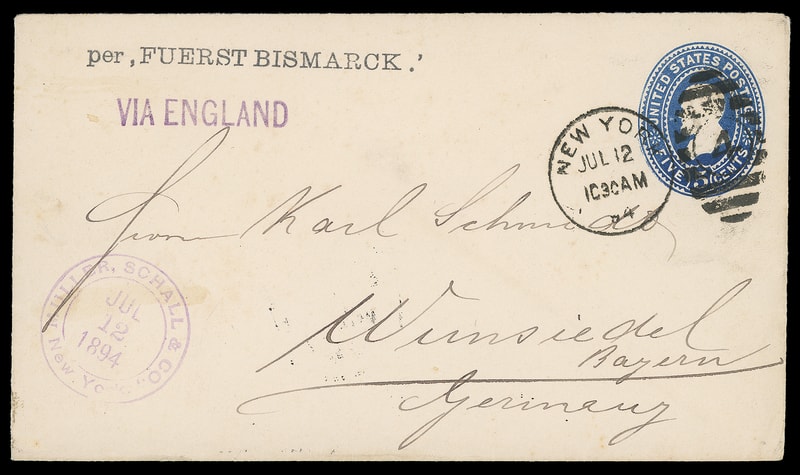 per ‚FUERST BISMARCK.’
VIA ENGLAND
UNITED STATES POSTAGE
FIVE 5 CENTS
NEW YORK
JUL 12
1030AM
94
Herrn Karl Schmidt
Wunsiedel
Bayern
Germany
MULLER, SCHALL & CO.
JUL
12
1894
New York